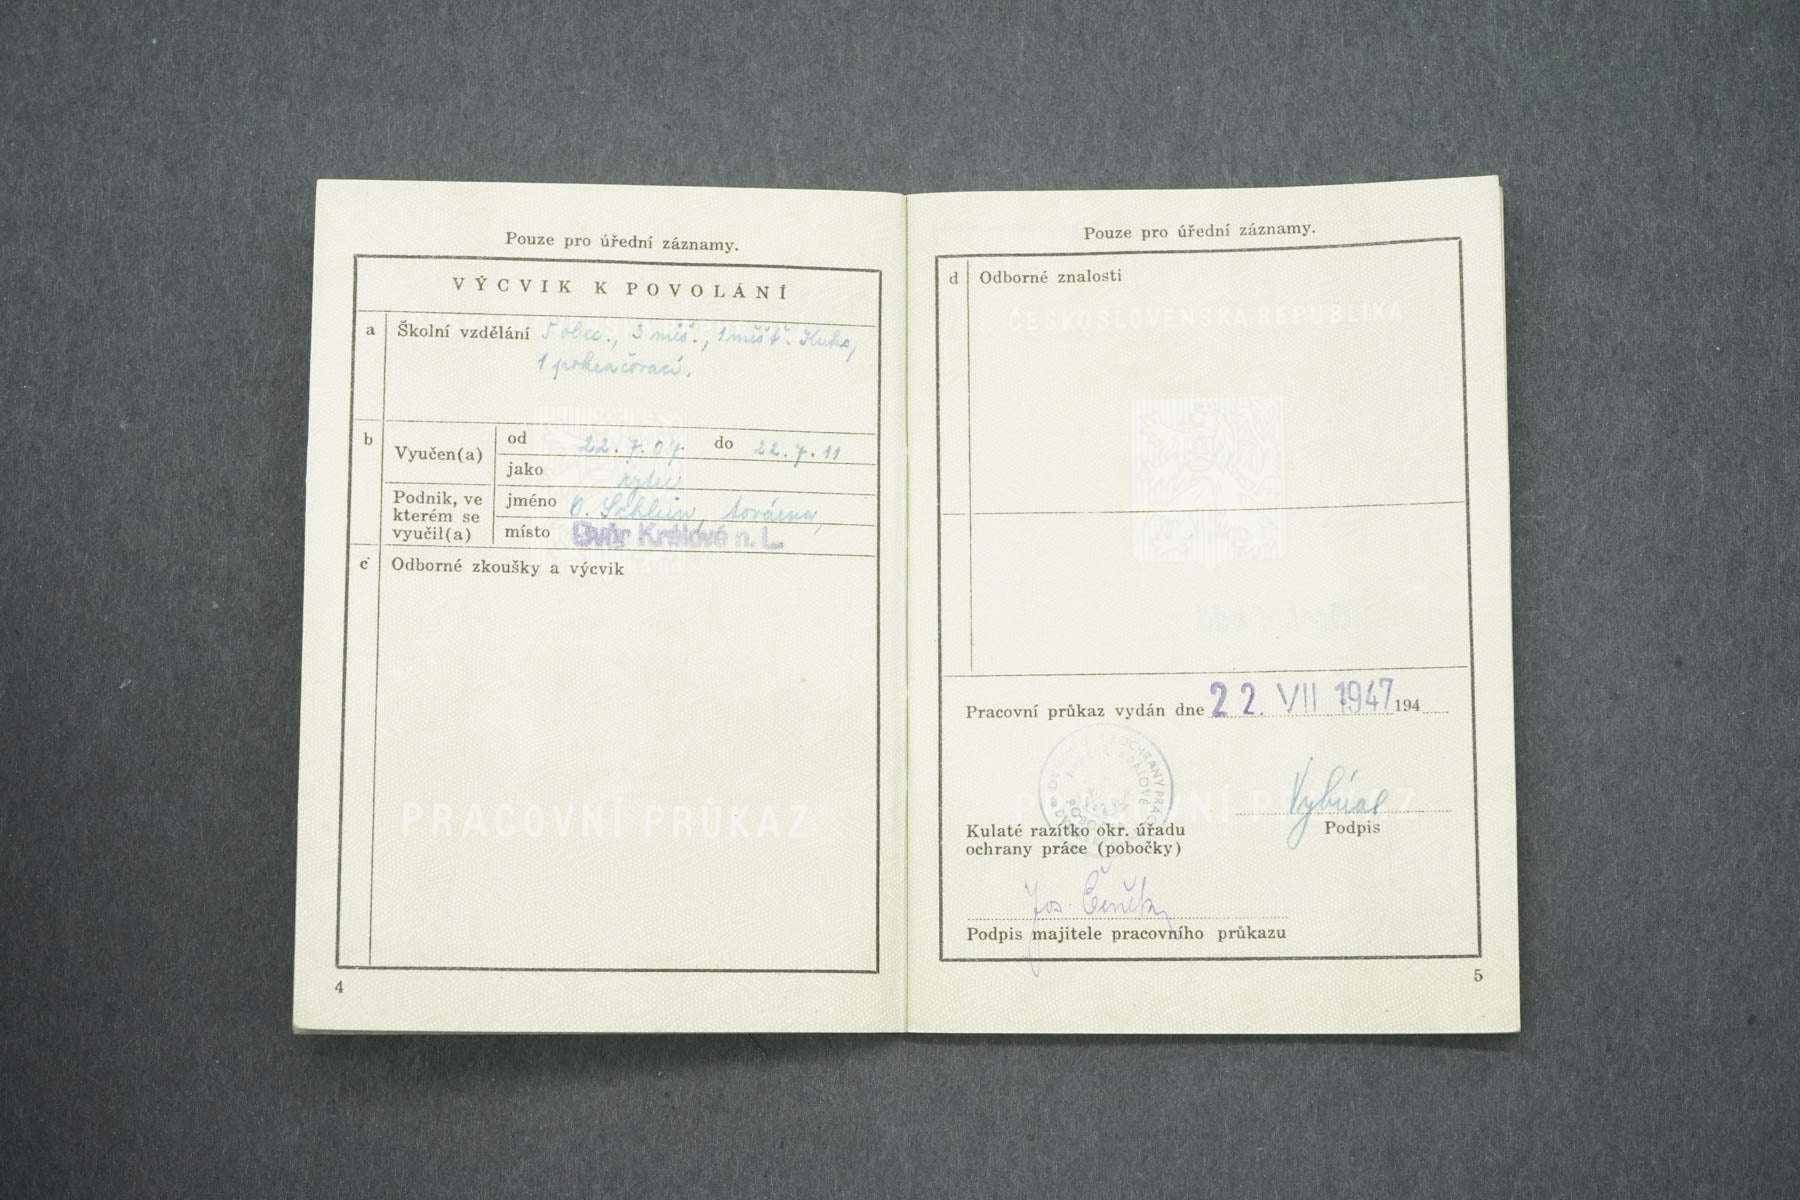 Pouze pro úřední záznamy.
VÝCVIK K POVOLÁNÍ
a Školní vzdělání 5 obec., 3 měš., 1 měšť. Kuks,
1 pokračovací.
b Vyučen(a) od 22.7.07. do 22.7.11
jako rytec
Podnik, ve kterém se vyučil(a) jméno továrna,
místo Dvůr Králové n. L.
c Odborné zkoušky a výcvik
PRACOVNÍ PRŮKAZ
4
Pouze pro úřední záznamy.
d Odborné znalosti
ČESKOSLOVENSKÁ REPUBLIKA
Pracovní průkaz vydán dne 22. VII 1947 194
OCHRANY PRÁCE
PRACOVNÍ PRŮKAZ
Kulaté razítko okr. úřadu
ochrany práce (pobočky)
Podpis
Jos.
Podpis majitele pracovního průkazu
5